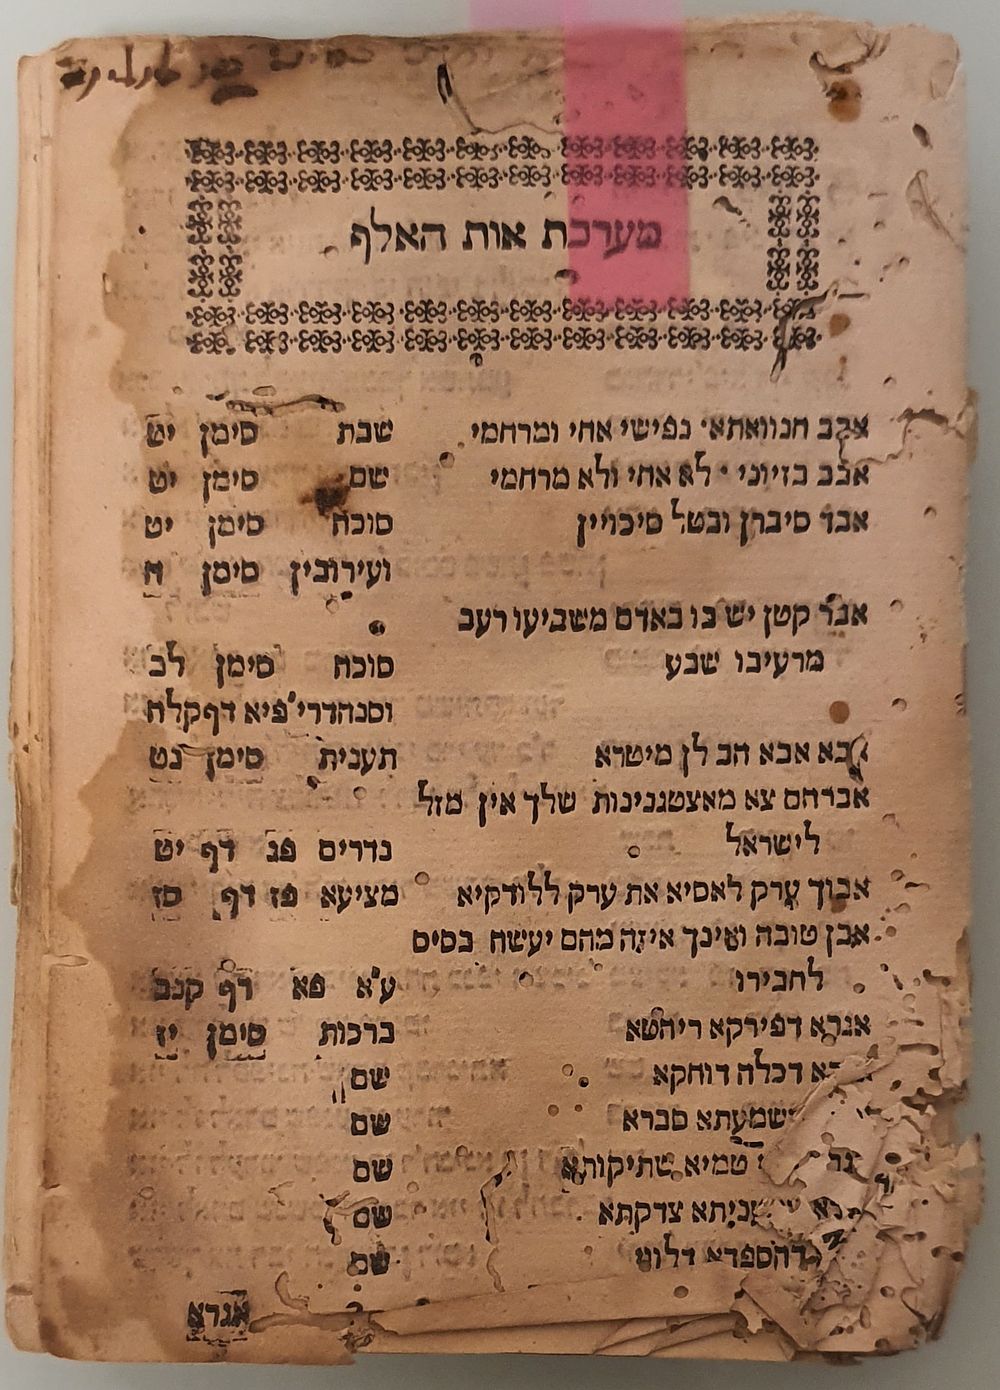 מערכת אות האלף
אבב חנוואתא נפישי אחי ומרחמי שבת סימן יט
אבב בזיוני לא אחי ולא מרחמי שם סימן יט
אבד סיברן ובטל סיכויין סוכה סימן יט
ועירובין סימן ח
אבר קטן יש בו באדם משביעו רעב
מרעיבו שבע סוכה סימן לב
וסנהדרי' פי"א דף קלח
אבא אבא הב לן מיטרא תענית סימן נט
אברהם צא מאצטגנינות שלך אין מזל
לישראל נדרים פג דף יט
אבוך ערק לאסיא את ערק ללודקיא מציעא פז דף סז
אבן טובה ואינך איזה מהם יעשה בסיס
לחבירו ע"א פא דף קנב
אגרא דפירקא ריהטא ברכות סימן יז
דכלה דוחקא שם
דשמעתא סברא שם
טמיא שתיקותא שם
צדקתא שם
דהספדא דלויי שם
אגרא